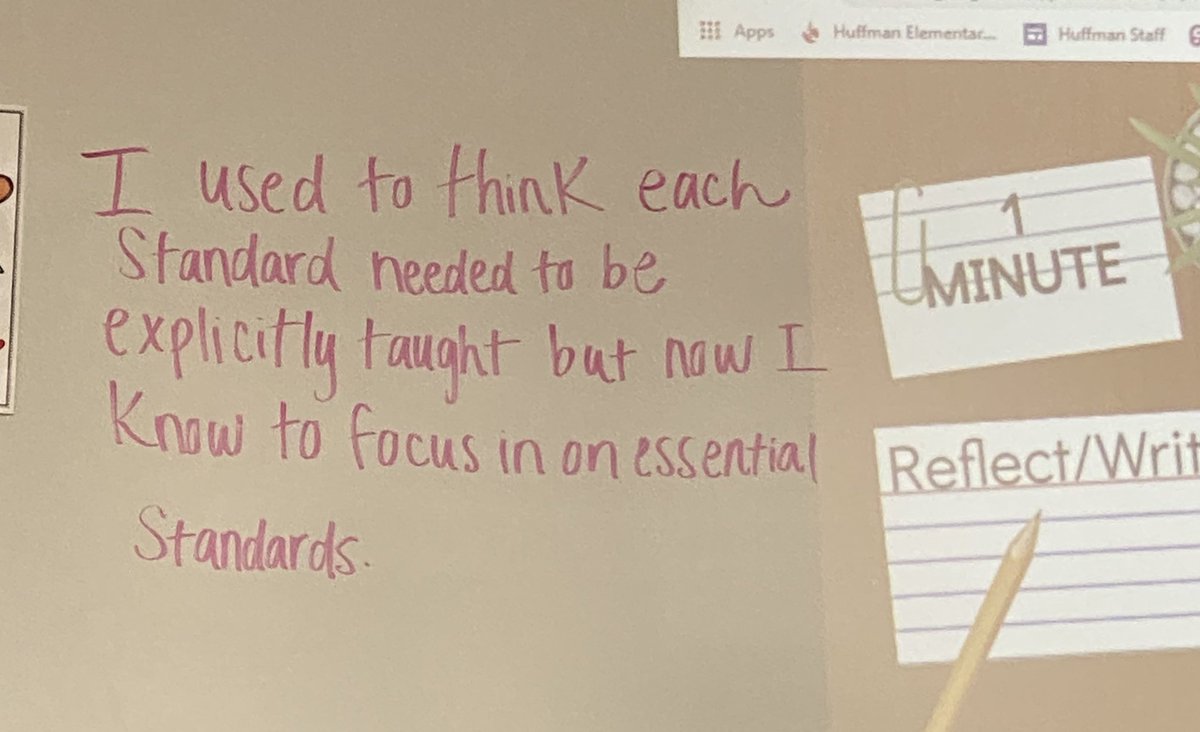 Apps Huffman Elementar... Huffman Staff
I used to think each
Standard needed to be
explicitly taught but now I
Know to focus in on essential
Standards.
1
MINUTE
Reflect/Writ